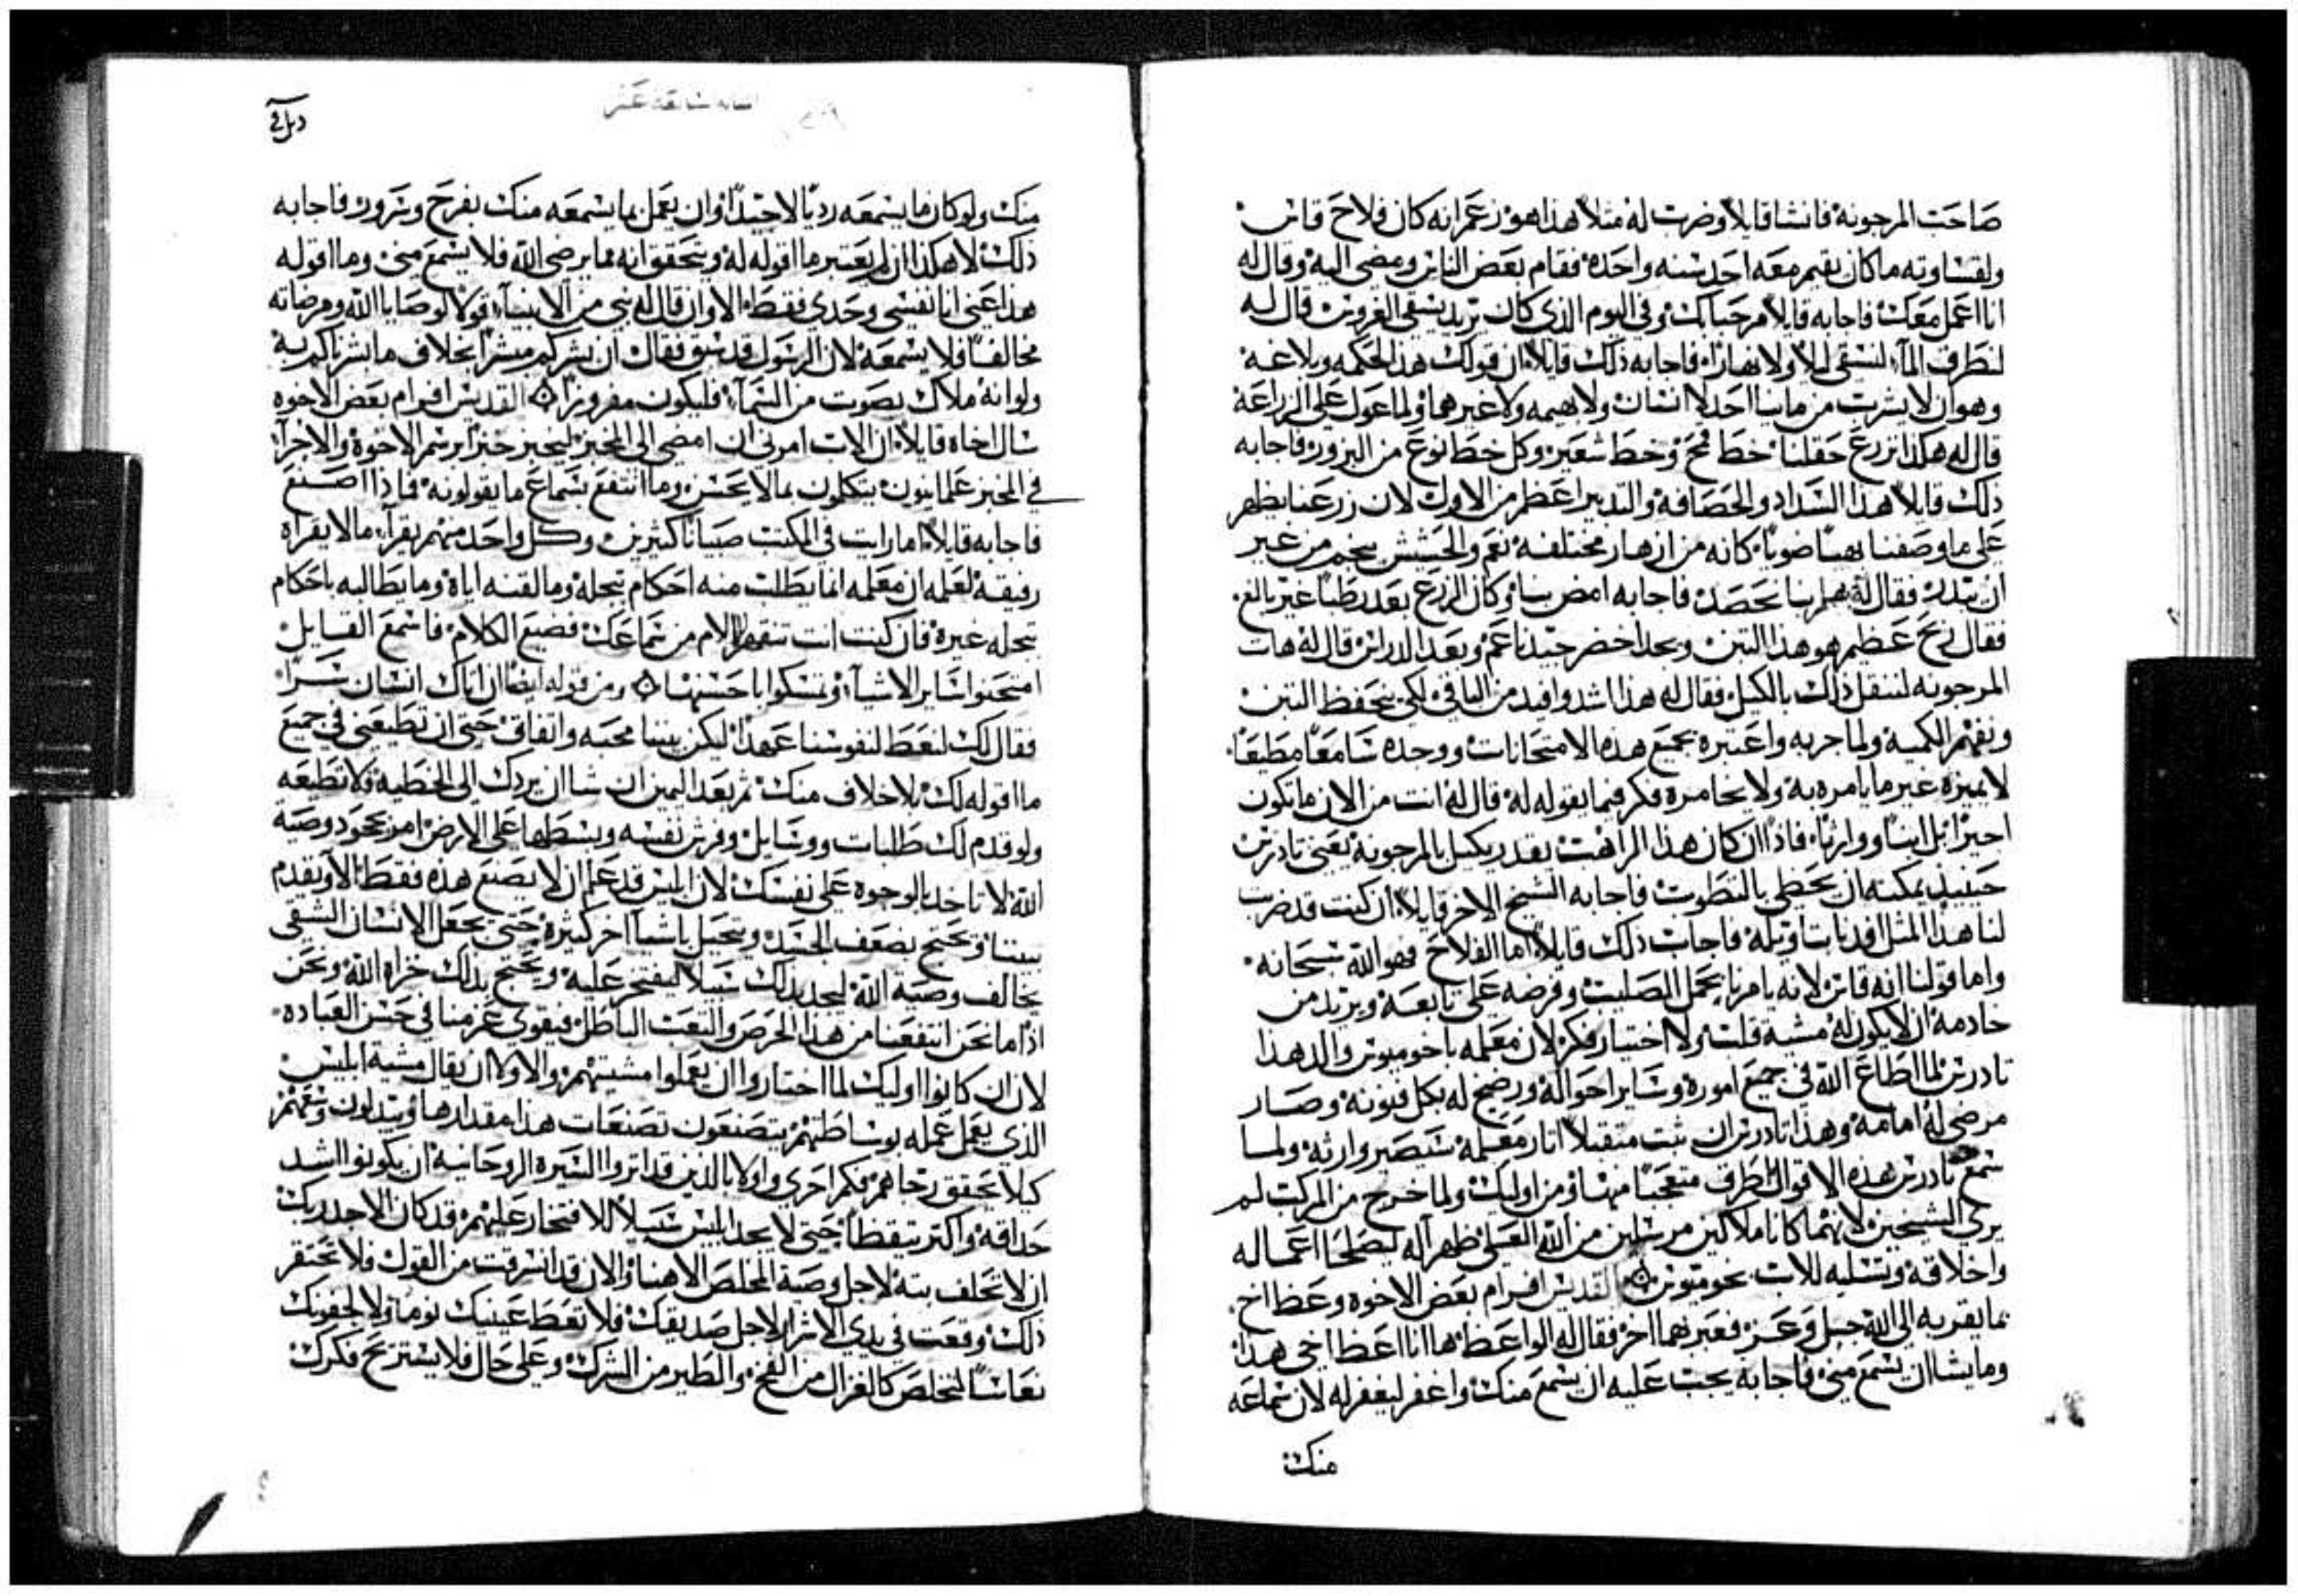 صاحب المرجونة فانشا قايلاً وضرب له مثلاً هذا هو زعم انه كان فلاح قاس
ولقساوته ما كان يقيم معه احد سنه واحده فقام بعض الناس ومضى اليه وقال له
انا اعمل معك فاجابه قايلاً مرحبا بك وفي اليوم الذي كان يريد يسقي الغروس قال له
لنطرف المآء لنسقي ليلاً ولا نهاراً فاجابه ذلك قايلاً ان قولك هذا لحكمه وبلاغة
وهو ان لا يشرب من مائنا احد لا انسان ولا بهيمه ولا غيرهما ولما عول على الزراعة
قال له هكذا نزرع حقلنا خط قمح وخط شعير وكل خط نوع من البزور فاجابه
ذلك قايلاً هذا السداد والحصافة والتدبير اعظم من الاول لان زرعنا يظهر
على ما وصفنا بهيّاً ضويّاً كانه من ازهار مختلفة نعم والحشيش ينجم من غير
ان يبذر فقال له هلم بنا نحصد فاجابه امض بنا وكان الزرع بعد رطباً غير بالغ
فقال ربح عظيم هو هذا التبن ونجد اخضر جيد ناعم وبعد الدراس قال له هات
المرجونه لننقل ذلك بالكيل فقال له هذا اشد وافيد من الباقي لكي نحفظ التبن
ونفهم الكمية ولما جربه واعتبره بجميع هذه الامتحانات ووجده سامعاً مطيعاً
لا يميزه غير ما يامره به ولا يخامره فكر فيما يقوله له قال له انت من الان ما تكون
اجيراً بل ابناً ووارثاً فاذاً ان كان هذا الراهب يقدر يكيل بالمرجونة يعني تادرس
حينيذ يمكنه ان يحظى بالتطويب فاجابه الشيخ الاخر قايلاً ان كنت قد ضربت
لنا هذا المثل افدنا بتاويله فاجاب ذلك قايلاً اما الفلاح فهو الله سبحانه
واما قولنا انه قاس لانه يامرنا بحمل الصليب وفرضه على تابعه ويريد من
خادمه ان لا يكون له مشية قلب ولا اختيار فكر لان معلمه باخوميوس والد هذا
تادرس لما اطاع الله في جميع اموره وساير احواله ورضخ له بكل فنونه وصار
مرضي له امامه وهذا تادرس ان ثبت متقبلاً اثار معلمه سيصير وارثه ولما
سمع تادرس هذه الاقوال اطرق متعجباً منها ومن اوليك ولما خرج من المركب لم
يرى الشيخين لانهما كانا ملاكين مرسلين من الله العلي ظهرا له ليصلحا اعماله
واخلاقه وتسليه للاب بخوميوس القديس افرام بعض الاخوه وعظ اخ
بما يقربه الى الله جل وعز فعبر بهما اخر فقال له الواعظ ها انا اعظ اخي هذا
وما يشا ان يسمع مني فاجابه يجب عليه ان يسمع منك واغفر ليغفر له لان سماعه
منك
دبل في
منك ولو كان ما يسمعه رديّاً لا جيداً وان يعمل بما يسمعه منك بفرح وسرور فاجابه
ذلك لا هكذا ان لم يعتبر ما اقوله له ويتحقق انه مما يرضي الله فلا يسمع مني وما اقوله
هذا عني انا نفسي وحدي فقط الا وان قال له نبي من الانبيآء قولاً لوصايا الله ومرضاته
مخالفاً فلا يسمعه لان الرسول قد سبق فقال ان بشركم مبشر بخلاف ما بشرناكم به
ولو انه ملاك بصوت من السمآء فليكون مفروزاً القديس افرام بعض الاخوه
سال اخاه قايلاً ان الاب امرني ان امضي الى المخبز ليخبز خبزاً برسم الاخوة والاجرآء
في المخبز علمانيون يتكلمون بما لا يحسن وما انتفع بسماع ما يقولونه فماذا اصنع
فاجابه قايلاً اما رايت في المكتب صبياناً كثيرين وكل واحد منهم يقرآ ما لا يقراه
رفيقه لعلمه ان معلمه انما يطلب منه احكام سجله وما لقنه اياه وما يطالبه باحكام
سجله غيره فان كنت انت تنقهر الالام من سماعك فضيع الكلام فاسمع القايل
امتحنوا ساير الاشيآء وتمسكوا باحسنها ومن قوله ايضاً ان اتاك انسان سراً
فقال لك لنعط لنفوسنا عهداً ليكن بيننا محبه واتفاق حتى ان تطيعني في جميع
ما اقوله لك بلا خلاف منك ثم بعد اليمين ان شا ان يردك الى الخطية فلا تطيعه
ولو قدم لك طلبات ووسايل وفرش نفسه وبسطها على الارض امر بجحود وصية
الله لا تاخذ بالوجوه على نفسك لان ابليس قد علم ان لا يصنع هذه فقط الا ويقدم
بيننا ويحتج بضعف الجسد ويتحيل باشيآ اخر كثيرة حتى يجعل الانسان الشقي
يخالف وصية الله ليجد بذلك سبيلاً ليفتخر عليه ويحتج بذلك خزاه الله ونحن
اذا ما نحن انتفعنا من هذا الحرص والتعب الباطل فيقوي عزمنا في حسن العباده
لان ان كانوا اوليك لما اختاروا ان يعملوا مشيتهم والاولا ان يقال مشية ابليس
الذي يعمل عمله بوساطتهم يتصنعون تصنعات هذا مقدارها ويبدلون وسعهم
كيلا يحقق رجاهم فكم احرى واولا بالذين قد اثروا السيرة الروحانية ان يكونوا اشد
حذاقه واكثر تيقظاً حتى لا يجد ابليس سبيلاً للافتخار عليهم قد كان الاجدر بك
ان لا تحلف بتة لاجل وصية المخلص الاهنا والان قد انسرقت من القول فلا تحتقر
ذلك وقعت في يدي الاشرار لاجل صديقك فلا تعط عينيك نوماً ولا لجفونك
نعاساً لتخلص كالغزال من الفخ والطير من الشرك وعلى حال فلا يستريح فكرك